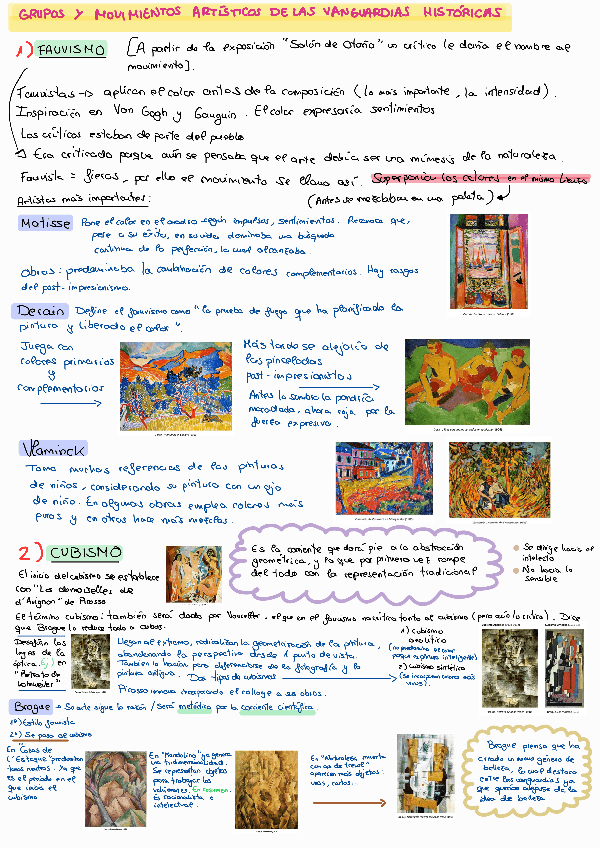 GRUPOS Y MOVIMIENTOS ARTÍSTICOS DE LAS VANGUARDIAS HISTÓRICAS
1) FAUVISMO [A partir de la exposición "Salón de Otoño" un crítico le daría el nombre al
movimiento].
Fauvistas -> aplican el color antes de la composición (lo más importante, la intensidad).
Inspiración en Van Gogh y Gauguin. El color expresaría sentimientos
Los críticos estaban de parte del pueblo
Era criticado porque aún se pensaba que el arte debía ser una mímesis de la naturaleza.
Fauvista = fieras, por ello el movimiento se llama así. Superponían los colores en el mismo lienzo
Artistas más importantes: (Antes se mezclaban en una paleta)
Matisse Pone el color en el cuadro según impulsos, sentimientos. que,
pese a su éxito, en su vida dominaba una búsqueda
continua de la perfección, la cual alcanzaba.
Obras: predominaba la combinación de colores complementarios. Hay rasgos
del post-impresionismo.
Derain Define el fauvismo como "la prueba de fuego que ha planificado la
pintura y liberado el color".
Juega con
colores primarios
y
complementarios
Más tarde se alejaría de
las pinceladas
post-impresionistas
Antes la sombra la pondría
morada, ahora roja por la
fuerza expresiva.
Vlaminck
Toma muchas referencias de las pinturas
de niños, considerando su pintura con un ojo
de niño. En algunas obras emplea colores más
puros y en otras hace más mezclas.
2) CUBISMO
Es la corriente que dará pie a la abstracción
geométrica, y la que por primera vez rompe
del todo con la representación tradicional
Se dirige hacia el
intelecto
No hacia lo
sensible
El inicio del cubismo se establece
con "Las demoiselles de
d'Avignon" de Picasso
El término cubismo: también será dado por Vauxcelles, el que en el fauvismo no critica tanto al cubismo (pero aún lo critica). Dice
que Braque lo reduce todo a cubos.
Desafían las
leyes de la
óptica. Ej en
"Retrato de
Kahnweiler"
Llegan al extremo, radicalizan la geometrización de la pintura,
abandonando la perspectiva desde 1 punto de vista.
También lo hacían para diferenciarse de la fotografía y la
pintura antigua. Dos tipos de cubismos
Picasso innova incorporando el collage a su obras.
1) Cubismo
analítico
(no predomina el color
porque es pintura inteligente)
2) Cubismo sintético
(Se incorporan colores más
vivos).
Braque - Su arte sigue la razón / Será metódico por la corriente científica.
1º) Estilo fauvista
2º) Se pasa al cubismo
En "Casas de
L'Estaque" predominan
tonos neutros. Ya que
es el periodo en el
que inicia el
cubismo
En "Mandolina" ya genera
una tridimensionalidad.
Se representan objetos
para trabajar los
volúmenes. En resumen:
Es racionalista e
intelectual.
En "Naturaleza muerta
con as de trévol"
aparecen más objetos:
uvas, cartas...
Braque piensa que ha
creado un nuevo género de
belleza, lo cual destaca
entre las vanguardias ya
que querían alejarse de la
idea de belleza